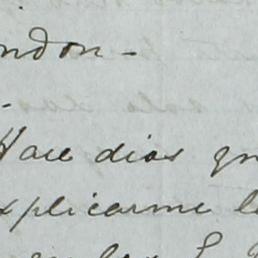 ndon -
-
Hace dias qu
xplicarme l